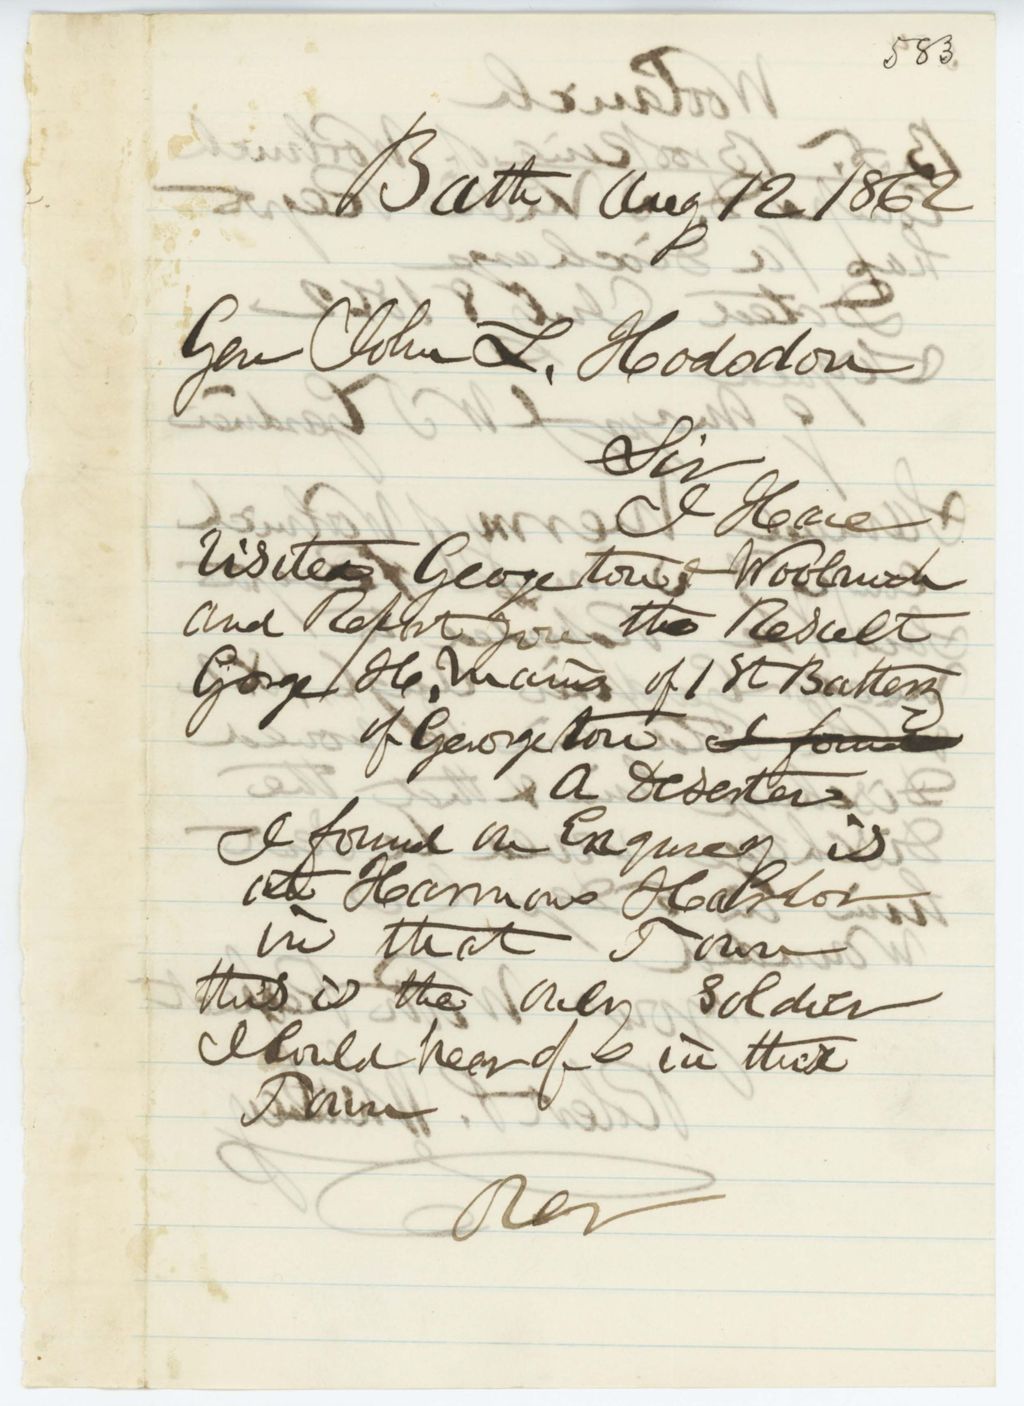 583
Bath Aug 12 1862
Gen John L. Hodsdon
Sir
I Have
visited Georgetown & Woolwich
and Report you the Result
George H. Marrs of 1st Battery
of Georgetown I found
A Deserter
I found on Enquirey is
at Harmons Harbor
in that Town
this is the only Soldier
I Could hear of in that
Town
Over